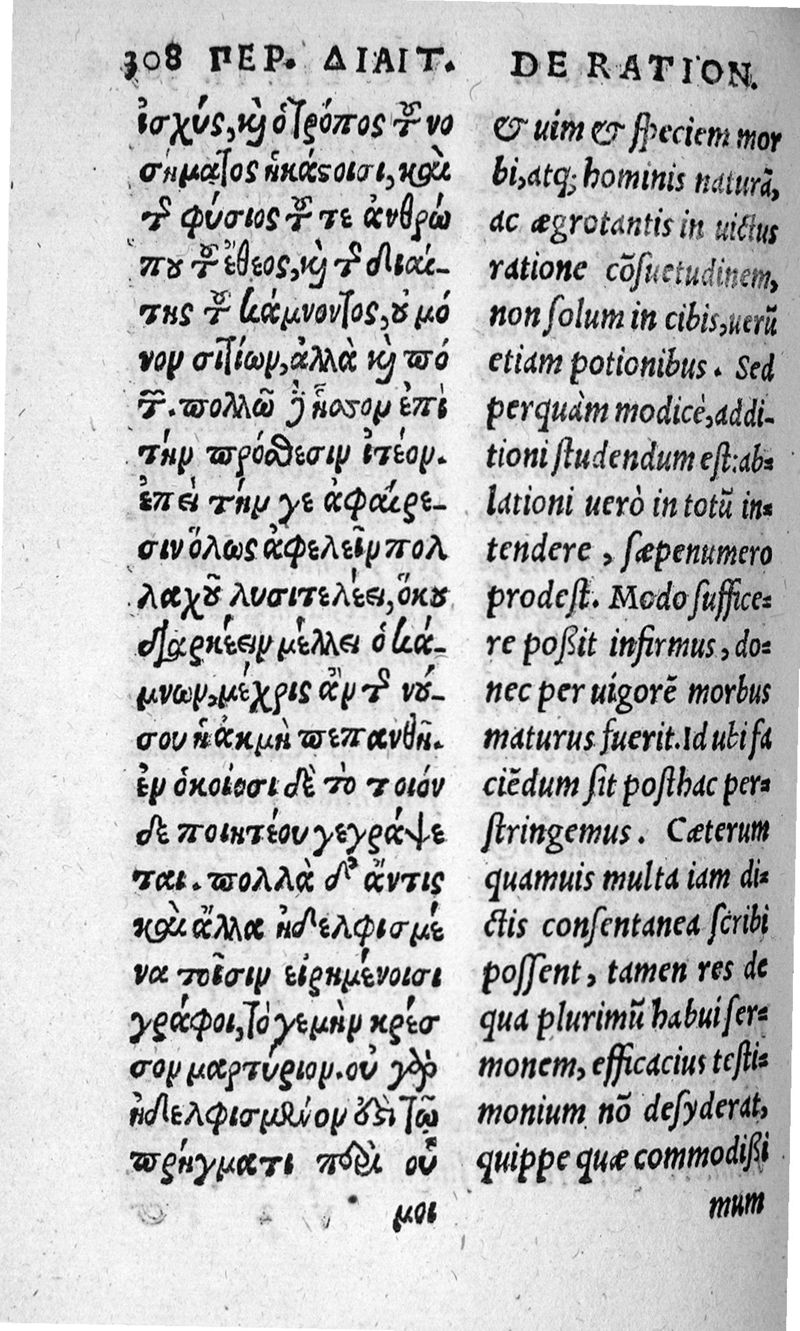 308 ΠΕΡ. ΔΙΑΙΤ.
ἰσχύς, καὶ ὁ τρόπος τοῦ νο
σήματος ἑκάστοισι, καὶ
τῆς φύσιος τοῦ τε ἀνθρώ
που τοῦ ἔθεος, καὶ τῆς διαί-
της τοῦ κάμνοντος, οὐ μό
νον σιτίων, ἀλλὰ καὶ πο
τῶν. πολλῷ δ' ἧσσον ἐπὶ
τὴν πρόσθεσιν ἰτέον.
ἐπεὶ τήν γε ἀφαίρε-
σιν ὅλως ἀφελεῖν πολ
λαχοῦ λυσιτελέει, ὅκου
διαρκέειν μέλλει ὁ κά-
μνων, μέχρις ἂν τῆς νού-
σου ἡ ἀκμὴ πεπανθῇ.
ἐν ὁκοίοισι δὲ τὸ τοιόν
δε ποιητέον γεγράψε
ται. πολλὰ δ' ἄν τις
καὶ ἄλλα ἠδελφισμέ
να τοῖσιν εἰρημένοισι
γράφοι, τό γε μὴν κρέσ
σον μαρτύριον. οὐ γὰρ
ἠδελφισμένον ἐστὶ τῷ
πρήγματι περὶ οὗ
μοι
DE RATION.
& uim & speciem mor
bi, atq; hominis naturã,
ac ægrotantis in uictus
ratione cõsuetudinem,
non solum in cibis, uerũ
etiam potionibus. Sed
perquàm modicè, addi-
tioni studendum est: ab-
lationi uerò in totũ in-
tendere, sæpenumero
prodest. Modo suffice-
re poßit infirmus, do-
nec per uigorẽ morbus
maturus fuerit. Id ubi fa
ciẽdum sit posthac per-
stringemus. Cæterum
quamuis multa iam di-
ctis consentanea scribi
possent, tamen res de
qua plurimũ habui ser-
monem, efficacius testi-
monium nõ desyderat,
quippe quæ commodißi
mum